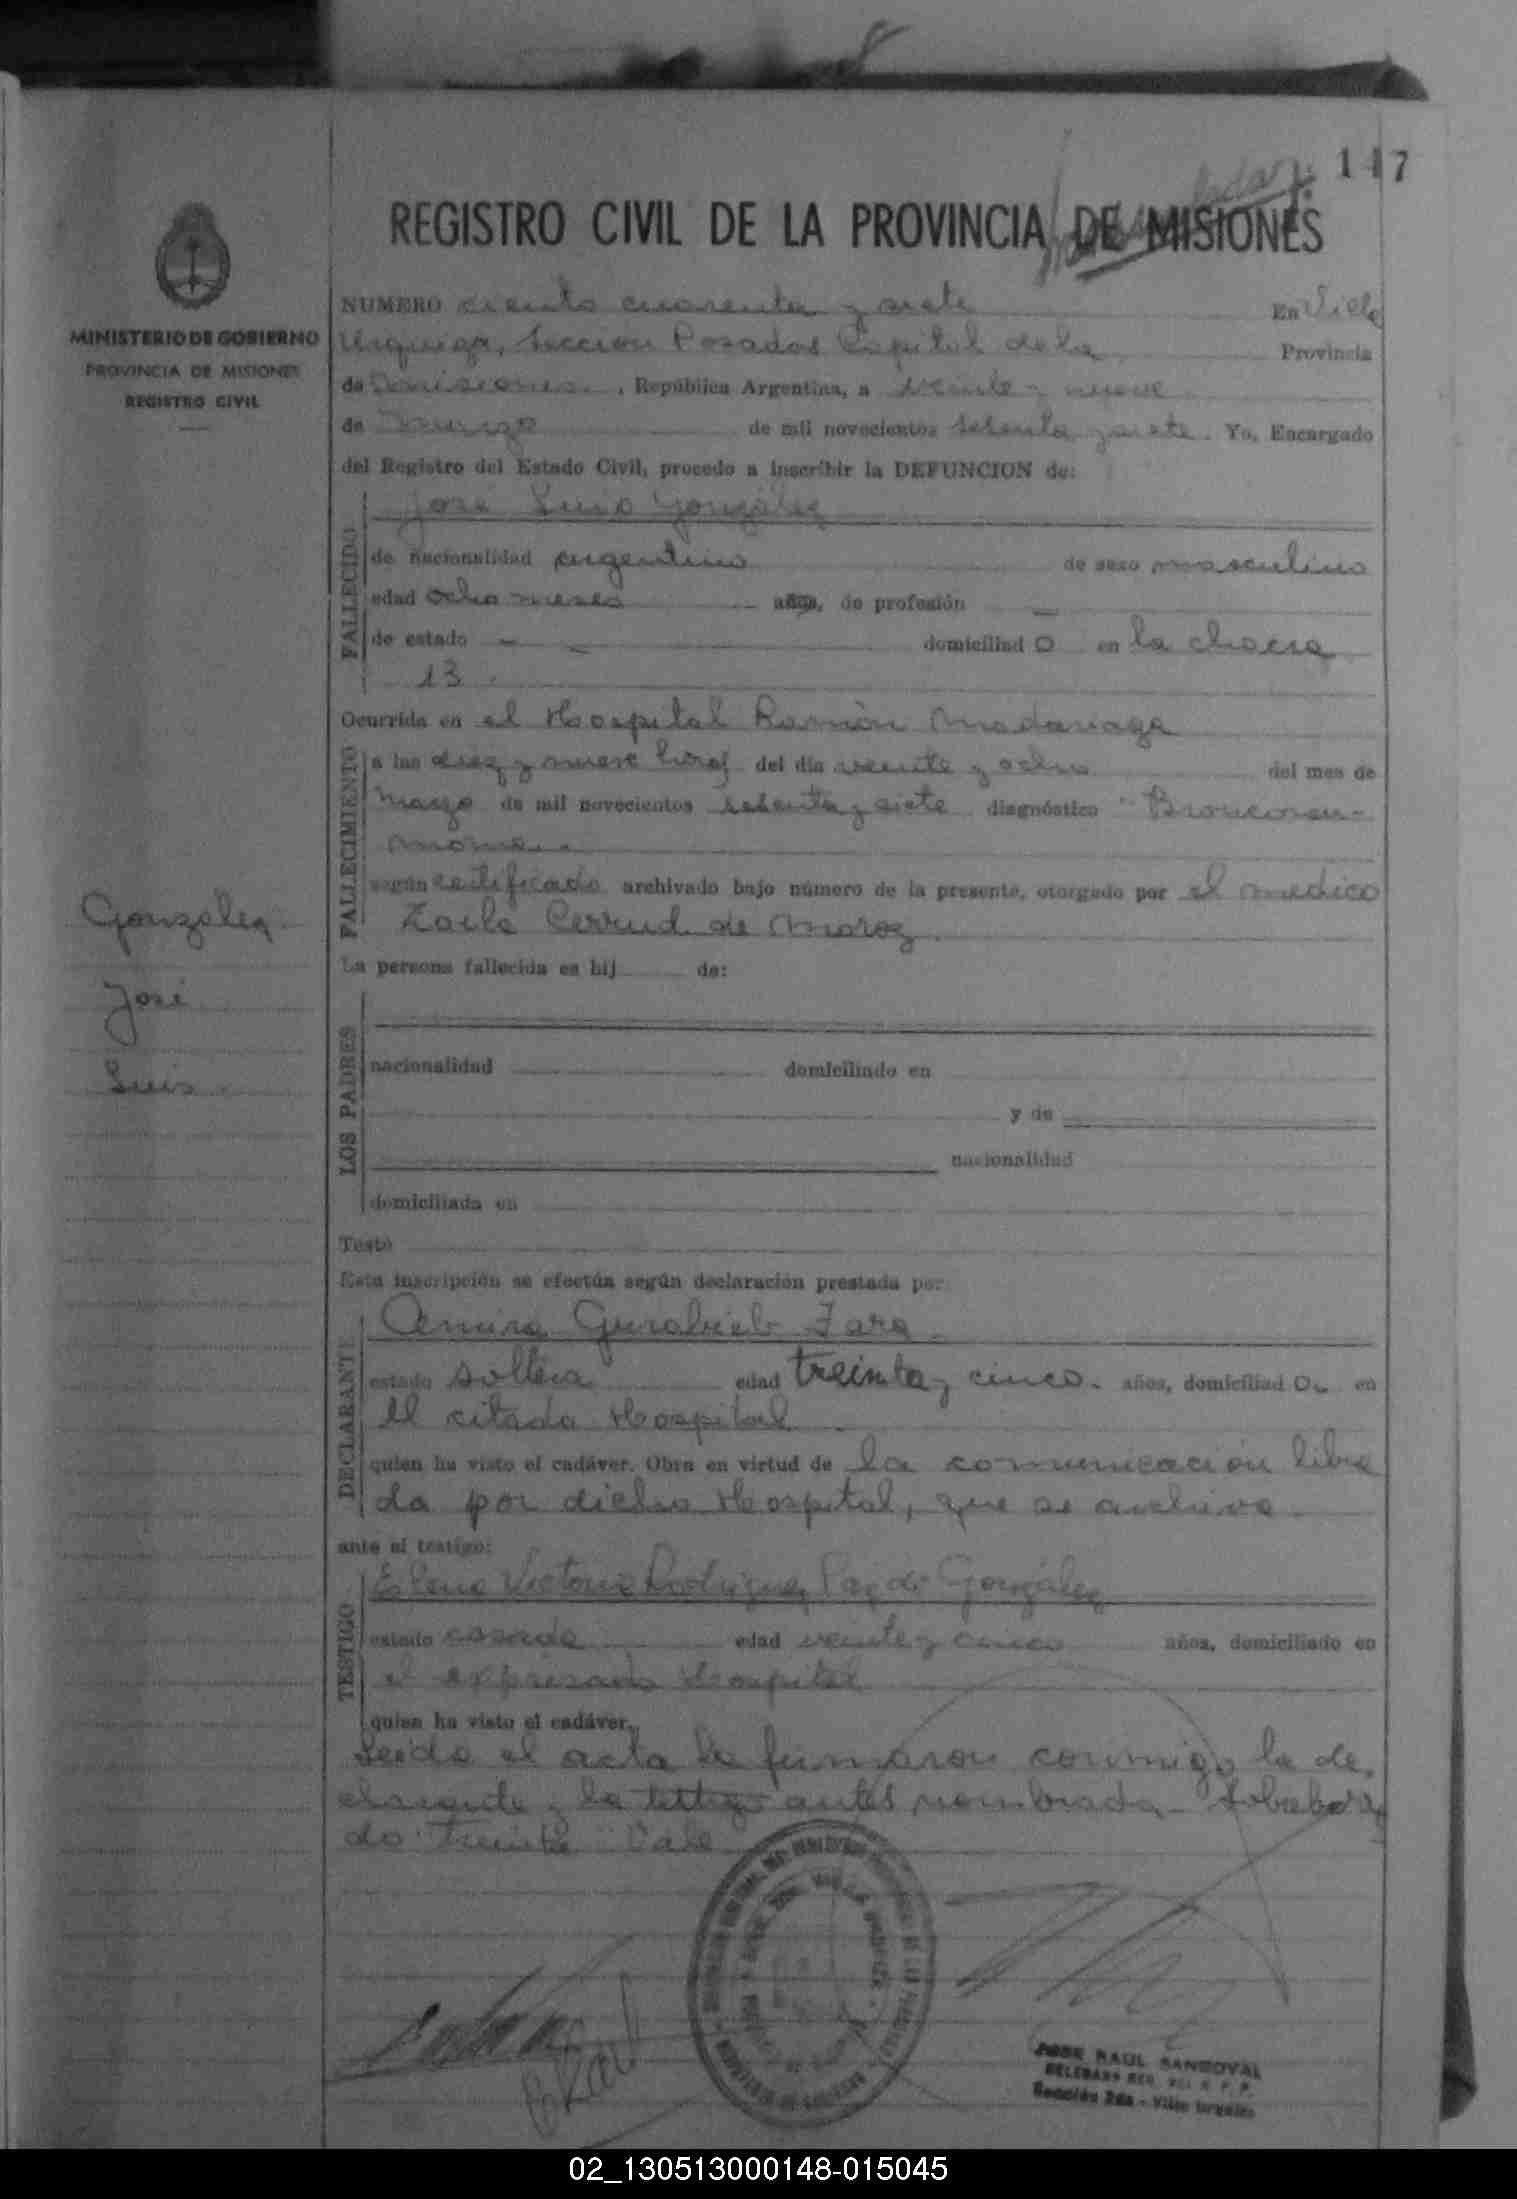 147
REGISTRO CIVIL DE LA PROVINCIA DE MISIONES
MINISTERIO DE GOBIERNO
PROVINCIA DE MISIONES
REGISTRO CIVIL
NUMERO ciento cuarenta y siete En Villa
Urquiza, Sección Posadas Capital de la Provincia
de Misiones, República Argentina, a veinte y nueve
de Marzo de mil novecientos setenta y siete. Yo, Encargado
del Registro del Estado Civil, procedo a inscribir la DEFUNCION de:
José Luis González
FALLECIDO
de nacionalidad argentino de sexo masculino
edad ocho meses años, de profesión —
de estado — domiciliad o en la chacra
13.
Ocurrida en el Hospital Ramón Madariaga
FALLECIMIENTO
a las diez y nueve horas del día veinte y ocho del mes de
Marzo de mil novecientos setenta y siete diagnóstico "Bronconeu-
monia".
según certificado archivado bajo número de la presente, otorgado por el medico
Zoila Cerrud de Maroz.
González
José
Luis
La persona fallecida es hij de:
LOS PADRES
nacionalidad domiciliado en
y de
nacionalidad
domiciliada en
Testó
Esta inscripción se efectúa según declaración prestada por:
DECLARANTE
Amira Zara
estado soltera edad treinta y cinco. años, domiciliad o en
el citado Hospital.
quien ha visto el cadáver. Obra en virtud de la comunicación libra
da por dicho Hospital, que se archiva.
ante el testigo:
TESTIGO
Elena Victoria Rodríguez Paz de González
estado casada edad veinte y cinco años, domiciliado en
el expresado Hospital
quien ha visto el cadáver.
Leída el acta la firmaron conmigo la de
clarante y la testigo antes nombrada. Sobreborra
do: treinta: Vale
JOSE RAUL SANDOVAL
Sección 2da - Villa Urquiza
02_130513000148-015045